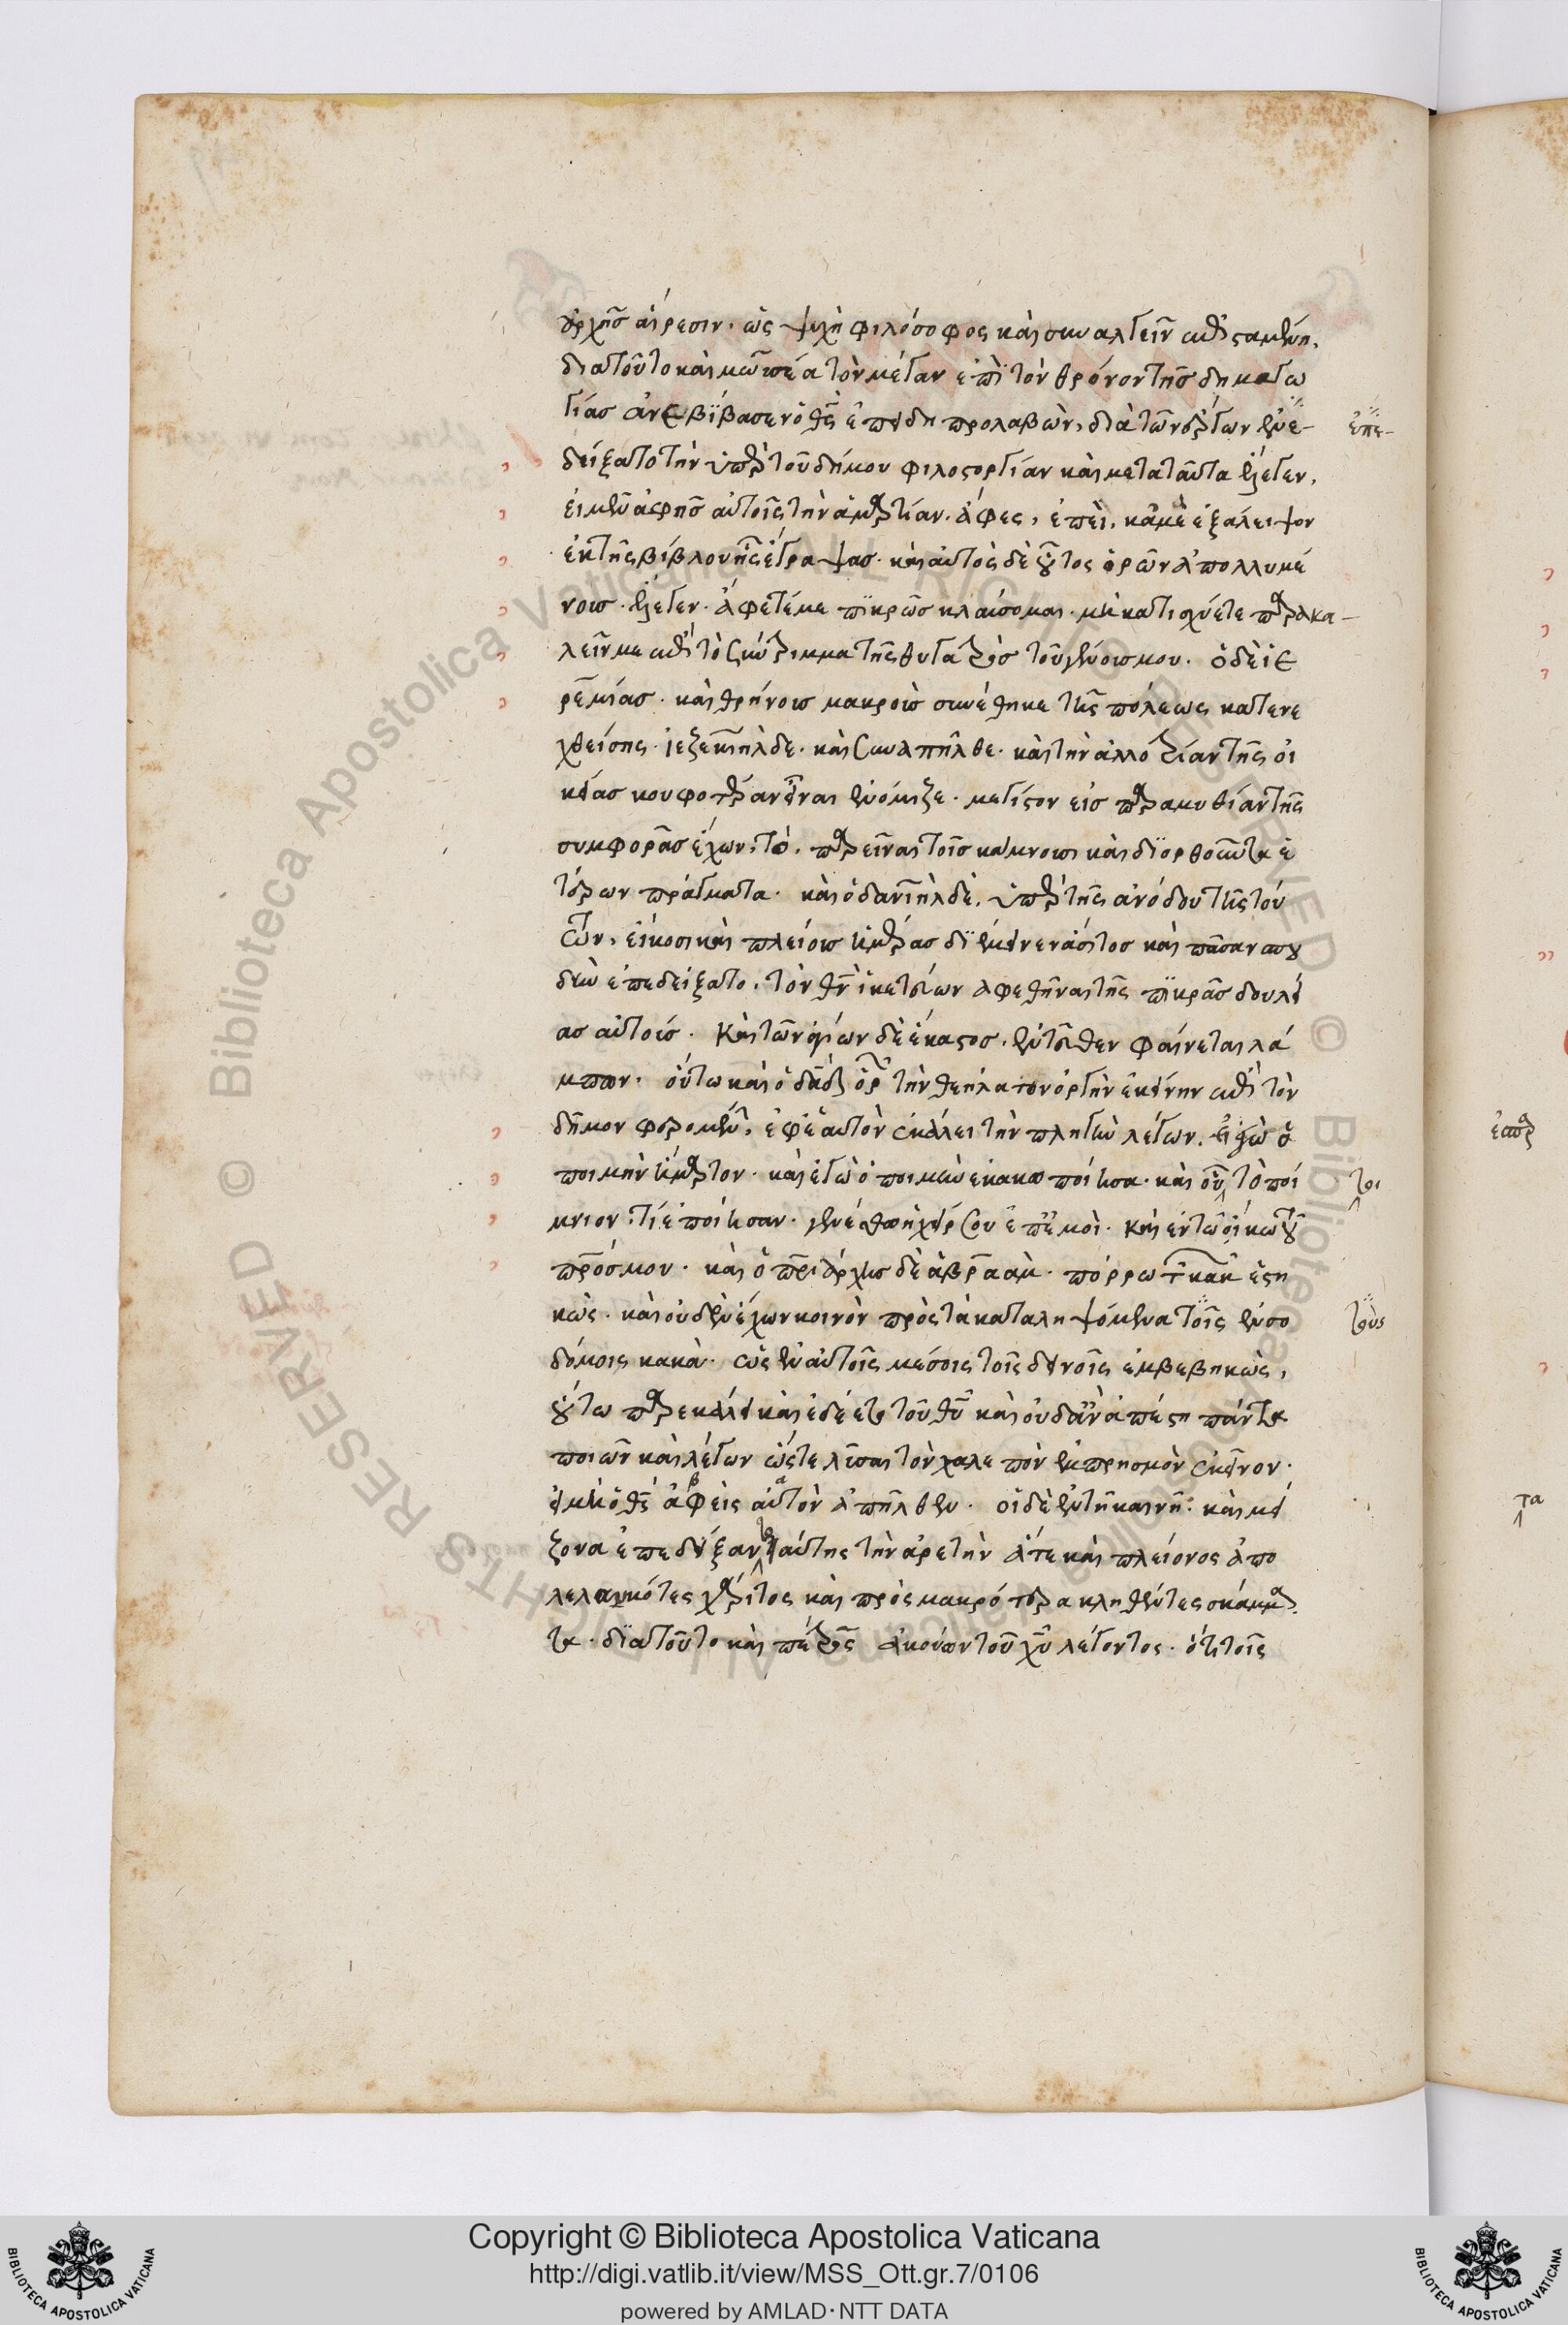 ἀρχῆς αἵρεσιν. ὡς ψυχὴ φιλόσοφος καὶ συναλγεῖν ἐπισταμένη.
διατοῦτο καὶ μωϋσέα τὸν μέγαν ἐπὶ τὸν θρόνον τῆς δημαγω
γίας ἀνεβίβασεν ὁ θς ἐπειδὴ προλαβὼν, διὰ τῶν ἔργων ἐνε-
δείξατο τὴν ὑπὲρ τοῦ δήμου φιλοστοργίαν καὶ μετὰ ταῦτα ἔλεγεν,
εἰ μὲν ἀφῇς αὐτοῖς τὴν ἁμαρτίαν. ἄφες, ἐπεὶ. κἀμὲ ἐξάλειψον
ἐκ τῆς βίβλου ἧς ἔγραψας. καὶ αὐτὸς δὲ οὗτος ὁρῶν ἀπολλυμέ
νους. ἔλεγεν. ἄφετέ με πικρῶς κλαύσομαι. μὴ κατισχύετε παρακα-
λεῖν με ἐπὶ τὸ σύντριμμα τῆς θυγατρὸς τοῦ γένους μου. ὁ δὲ ἱε
ρεμίας. καὶ θρήνους μακροὺς συνέθηκε τῆς πόλεως κατενε
χθείσης. ἰεζεκιὴλ δὲ. καὶ συναπῆλθε. καὶ τὴν ἀλλοτρίαν τῆς οἰ
κείας κουφοτέραν εἶναι ἐνόμιζε. μέγιστον εἰς παραμυθίαν τῆς
συμφορᾶς ἔχων, τὸ. παρεῖναι τοῖς κάμνουσι καὶ διορθοῦν τὰ ἐ
τέρων πράγματα. καὶ ὁ δανιὴλ δὲ. ὑπὲρ τῆς ἀνόδου τῆς τού
των, εἴκοσι καὶ πλείους ἡμέρας διέμεινεν ἄσιτος καὶ πᾶσαν σπου
δὴν ἐπεδείξατο. τὸν θν ἱκετεύων ἀφεθῆναι τῆς πικρᾶς δουλεί
ας αὐτοὺς. Καὶ τῶν ἁγίων δὲ ἕκαστος. ἐντεῦθεν φαίνεται λά
μπων. οὕτω καὶ ὁ δαδ ὁρῶν τὴν θεήλατον ὀργὴν ἐκείνην ἐπὶ τὸν
δῆμον φερομένην, ἐφ' ἑαυτὸν ἐκάλει τὴν πληγὴν λέγων. ἐγὼ ὁ
ποιμὴν ἥμαρτον. καὶ ἐγὼ ὁ ποιμὴν ἐκακοποίησα. καὶ οὗτοι τὸ ποί
μνιον. τί ἐποίησαν. γενέσθω ἡ χείρ σου ἐπ' ἐμοὶ. καὶ ἐν τῷ οἴκῳ τοῦ
πρός μου. καὶ ὁ πριάρχης δὲ ἀβραὰμ. πόρρω τῶν κακῶν ἑστη
κὼς. καὶ οὐδὲν ἔχων κοινὸν πρὸς τὰ καταληψόμενα τοῖς ἐν σο
δόμοις κακὰ. ὡς ἐν αὐτοῖς μέσοις τοῖς δεινοῖς ἐμβεβηκὼς,
οὕτω παρεκάλει καὶ ἐδέετο τοῦ θυ καὶ οὐδ' ἂν ἀπέστη πάντα
ποιῶν καὶ λέγων ὥστε λῦσαι τὸν χαλεπὸν ἐμπρησμὸν ἐκεῖνον.
εἰ μὴ ὁ θς ἀφεὶς αὐτὸν ἀπῆλθεν. οἱ δὲ ἐν τῇ καινῇ. καὶ μεί
ζονα ἐπεδείξαντο ταύτης τὴν ἀρετὴν ἅτε καὶ πλείονος ἀπο
λελαυκότες χάριτος καὶ πρὸς μακρότερα κληθέντες σκάμμα
τα. διατοῦτο καὶ πέτρος ἀκούων τοῦ χυ λέγοντος. ὅτι τοῖς
ἐπε-
τοι
τοὺς
τα
Copyright © Biblioteca Apostolica Vaticana
http://digi.vatlib.it/view/MSS_Ott.gr.7/0106
powered by AMLAD·NTT DATA